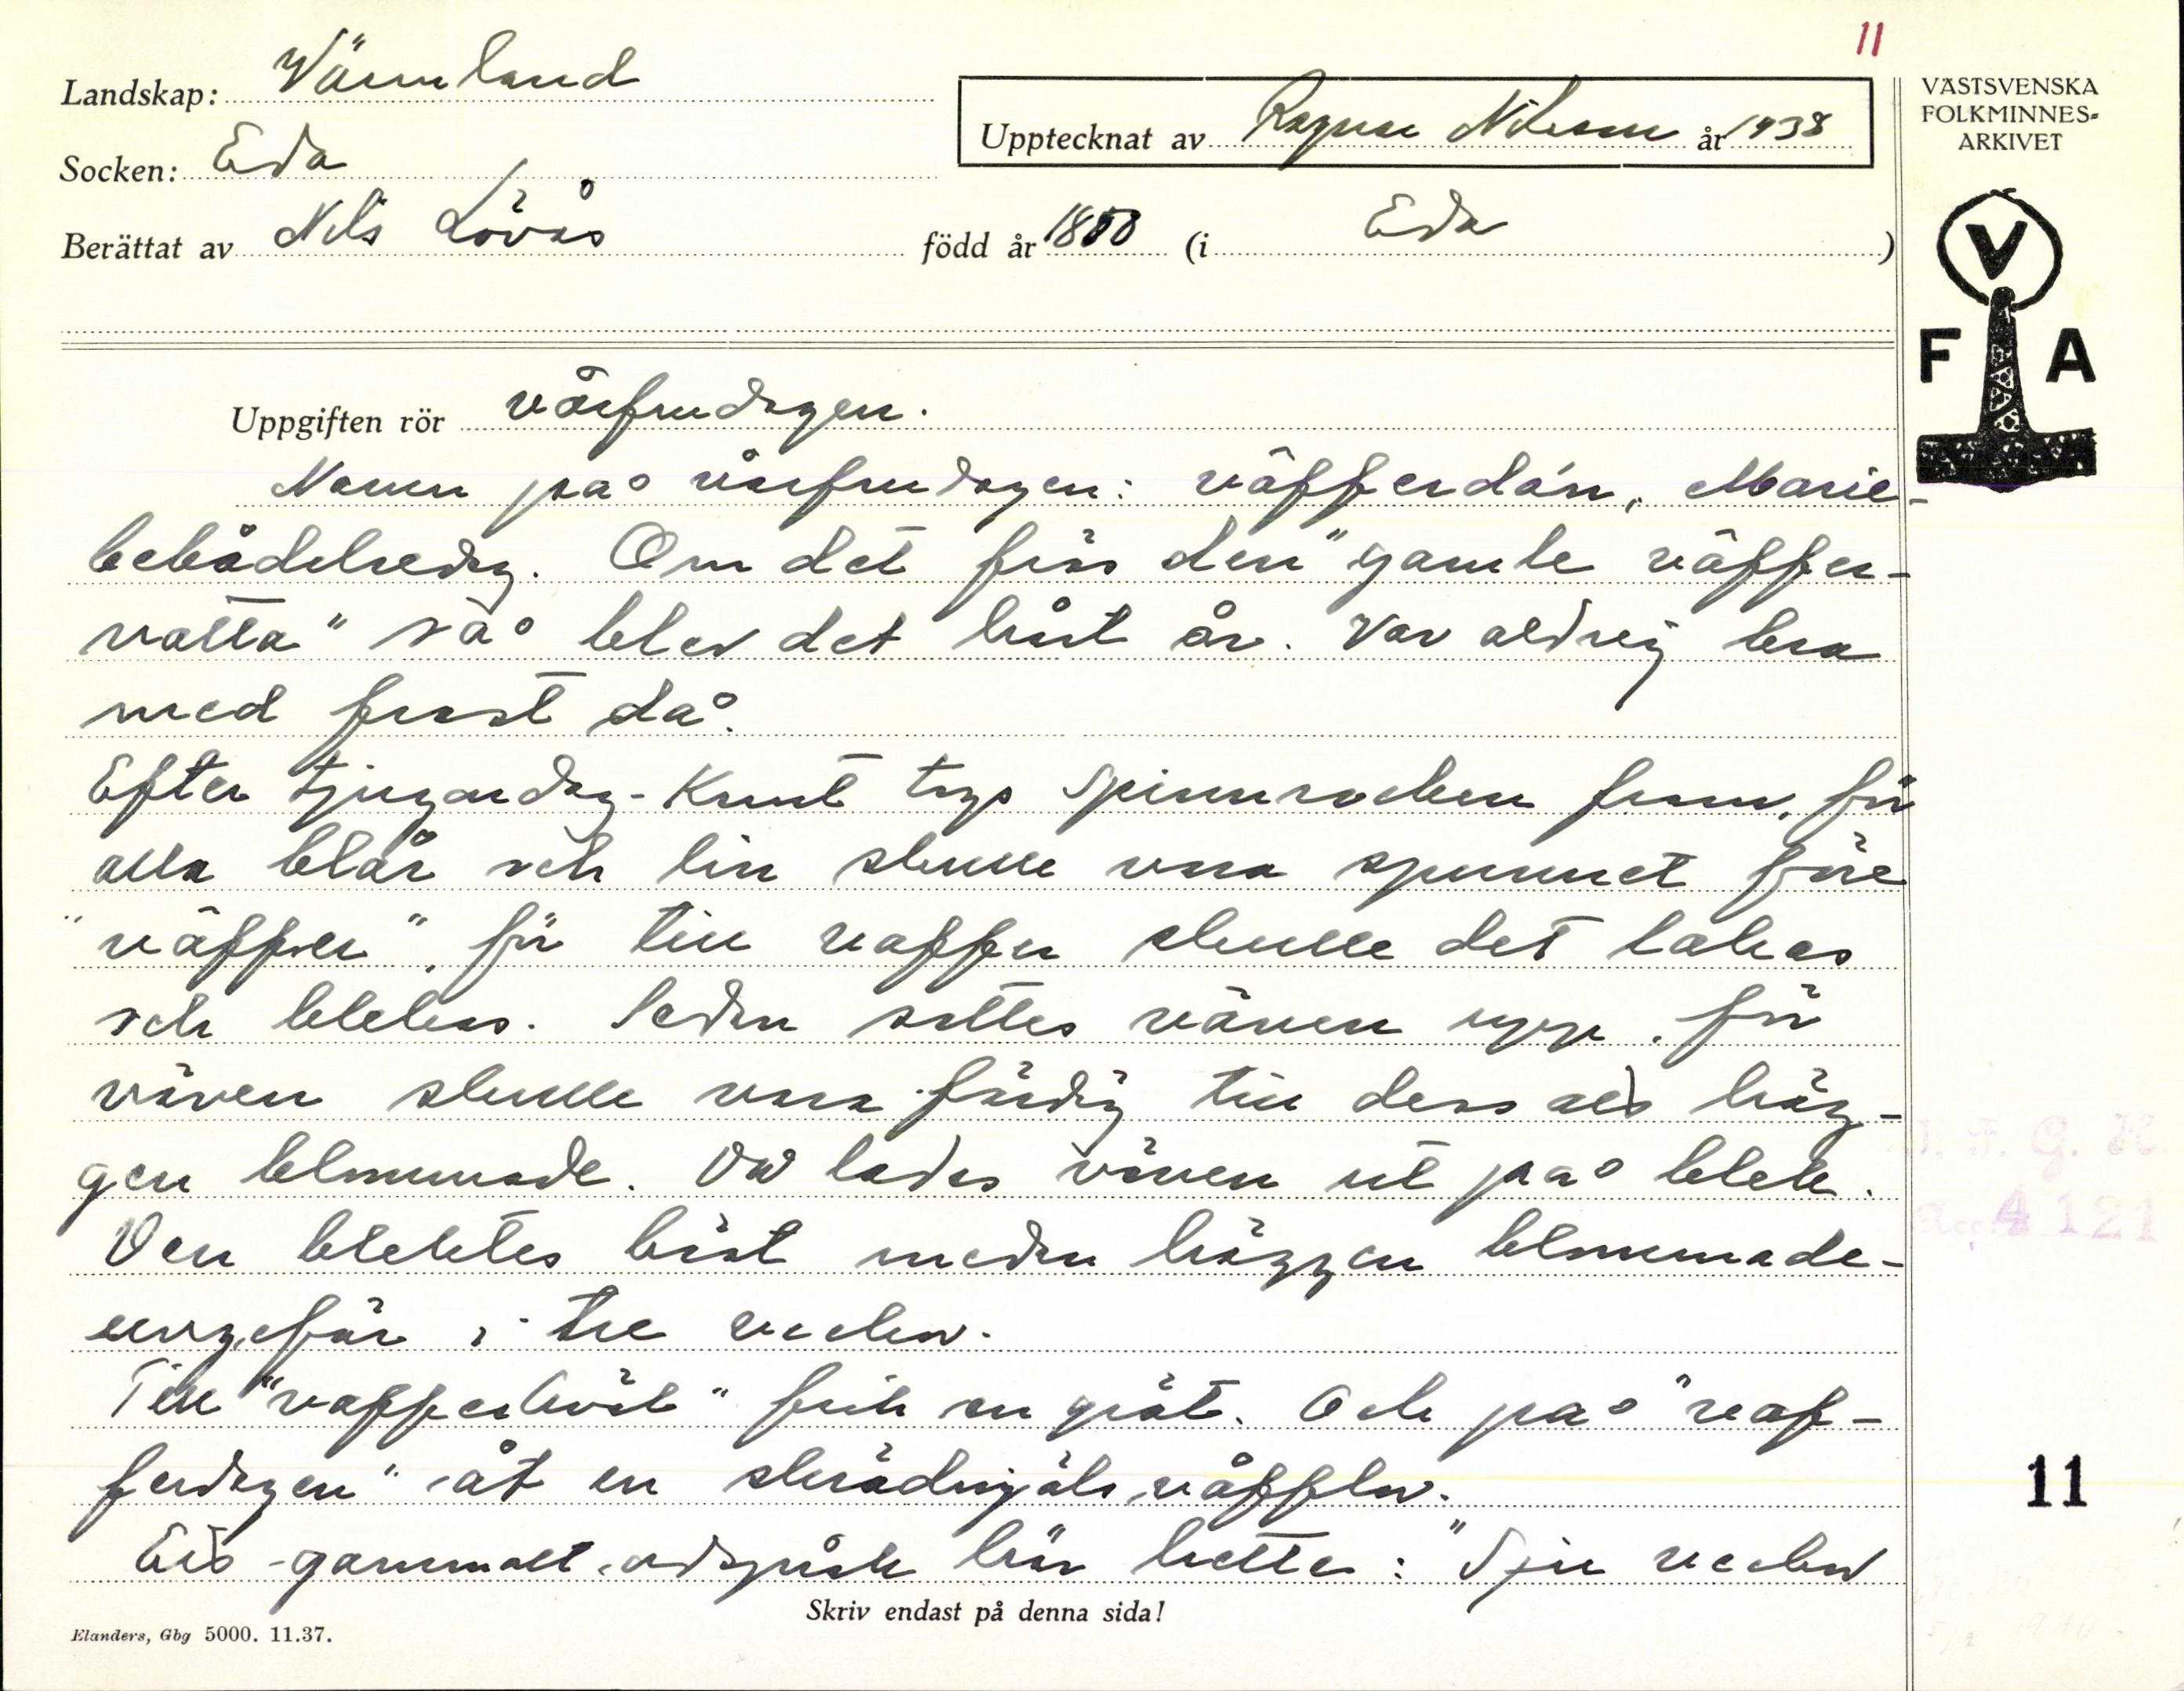 11
Landskap: Värmland
Upptecknat av Ragnar Nilsson år 1938
VÄSTSVENSKA
FOLKMINNES-
ARKIVET
Socken: Eda
Berättat av Nils Lövås född år 1850 (i Eda)
V
F A
Uppgiften rör vårfrudagen.
Namn på vårfrudagen: väfferdán, Marie-
bebådelsedag. Om det frös den "gamle väffer-
natta" så blev det hårt år. Var aldrig bra
med frost då.
Efter tjugondag-Knut togs spinnrocken fram, för
alla blår och lin skulle vara spunnet före
"väffer", för till vaffer skulle det lakas
och blekas. Sedan sattes väven upp, för
väven skulle vara färdig till dess att häg-
gen blommade. Då lades väven ut på blek.
Den blektes bäst medan häggen blommade-
ungefär i tre veckor.
Till "vafferkväll" fick en gröt. Och på "vaf-
ferdagen" åt en skrädmjöls våfflor.
Ett gammalt ordspråk här hette: "Sju veckor
J. F. G. H.
Acc. 4121
11
Skriv endast på denna sida!
Elanders, Gbg 5000. 11.37.